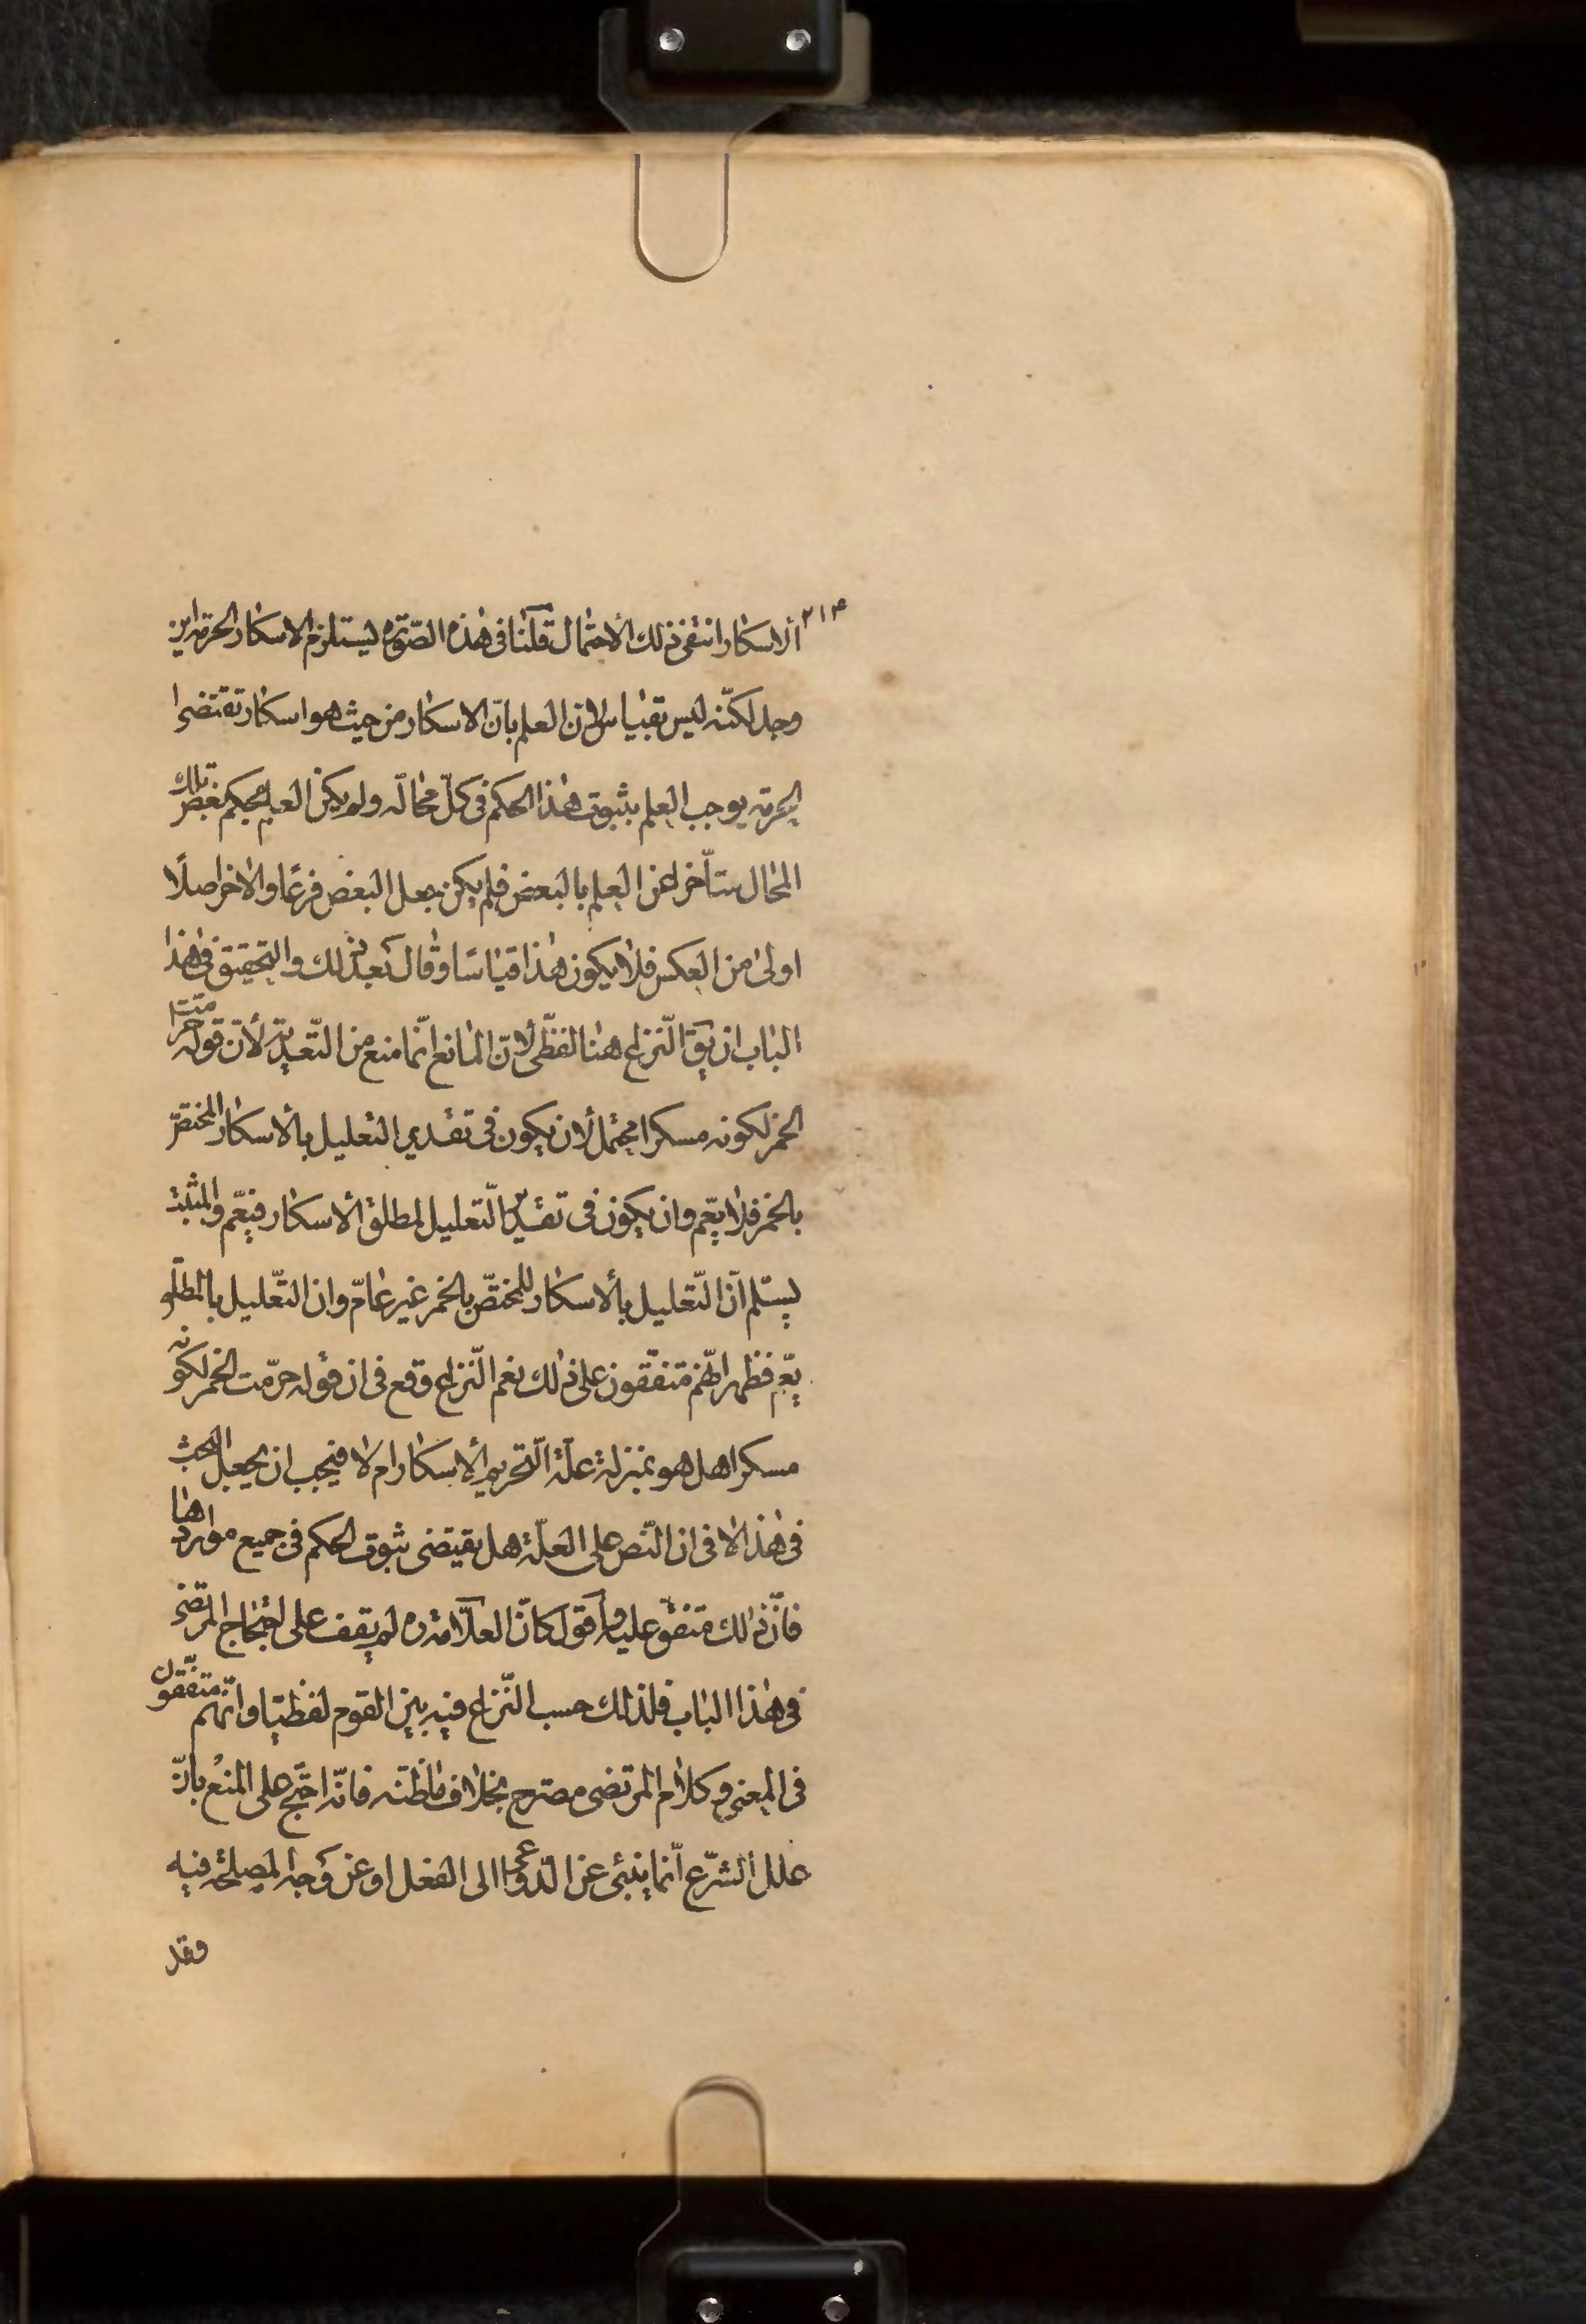 ٢١٣
الاسكار انتفى ذلك الاحتمال قلنا فى هذه الصّورة يستلزم الاسكار الحرمة اين
وجد لكنّه ليس بقياس لان العلم بانّ الاسكار من حيث هو اسكار تقتضى
الحرمة يوجب العلم بثبوت هذا الحكم فى كلّ محالّه ولم يكن العلم بحكم بعض تلك
المحال متأخرا عن العلم بالبعض فلم يكن جعل البعض فرعًا والاخر اصلًا
اولى من العكس فلا يكون هذا قياسًا وقال بعد ذلك والتحقيق فى هذا
الباب ان يق النّزاع هنا لفظىّ لانّ المانع انّما منع من التّعدية لأنّ قوله حرّمت
الخمر لكونه مسكرا محتمل لان يكون فى تقدير التعليل بالأسكار المختصّ
بالخمر فلا يعّم وان يكون فى تقدير التّعليل لمطلق الأسكار فيعّم والمثبت
يسلّم انّ التّعليل بالأسكار المختصّ بالخمر غير عامّ وان التّعليل بالمطلق
يعّم فظهر انّهم متفّقون على ذلك نعم النّزاع وقع فى ان قوله حرّمت الخمر لكونه
مسكرا هل هو بمنزلة علّة التّحريم الأسكار ام لا فيجب ان يجعل البحث
فى هذا لا فى ان النّص على العلّة هل يقتضى ثبوت الحكم فى جميع مواردها
فانّ ذلك متفق عليه واقول كانّ العلّامة ره لم يقف على احتجاج المرتضى
فى هذا الباب فلذلك حسب النّزاع فيه بين القوم لفظيّا وانّهم متفّقون
فى المعنى وكلام المرتضى مصّرح بخلاف ما ظنّه فانّه احتّج على المنع بانّ
علل الشرّع انّما ينبئ عن الدّواعى الى الفعل او عن وجه المصلحة فيه
وقد